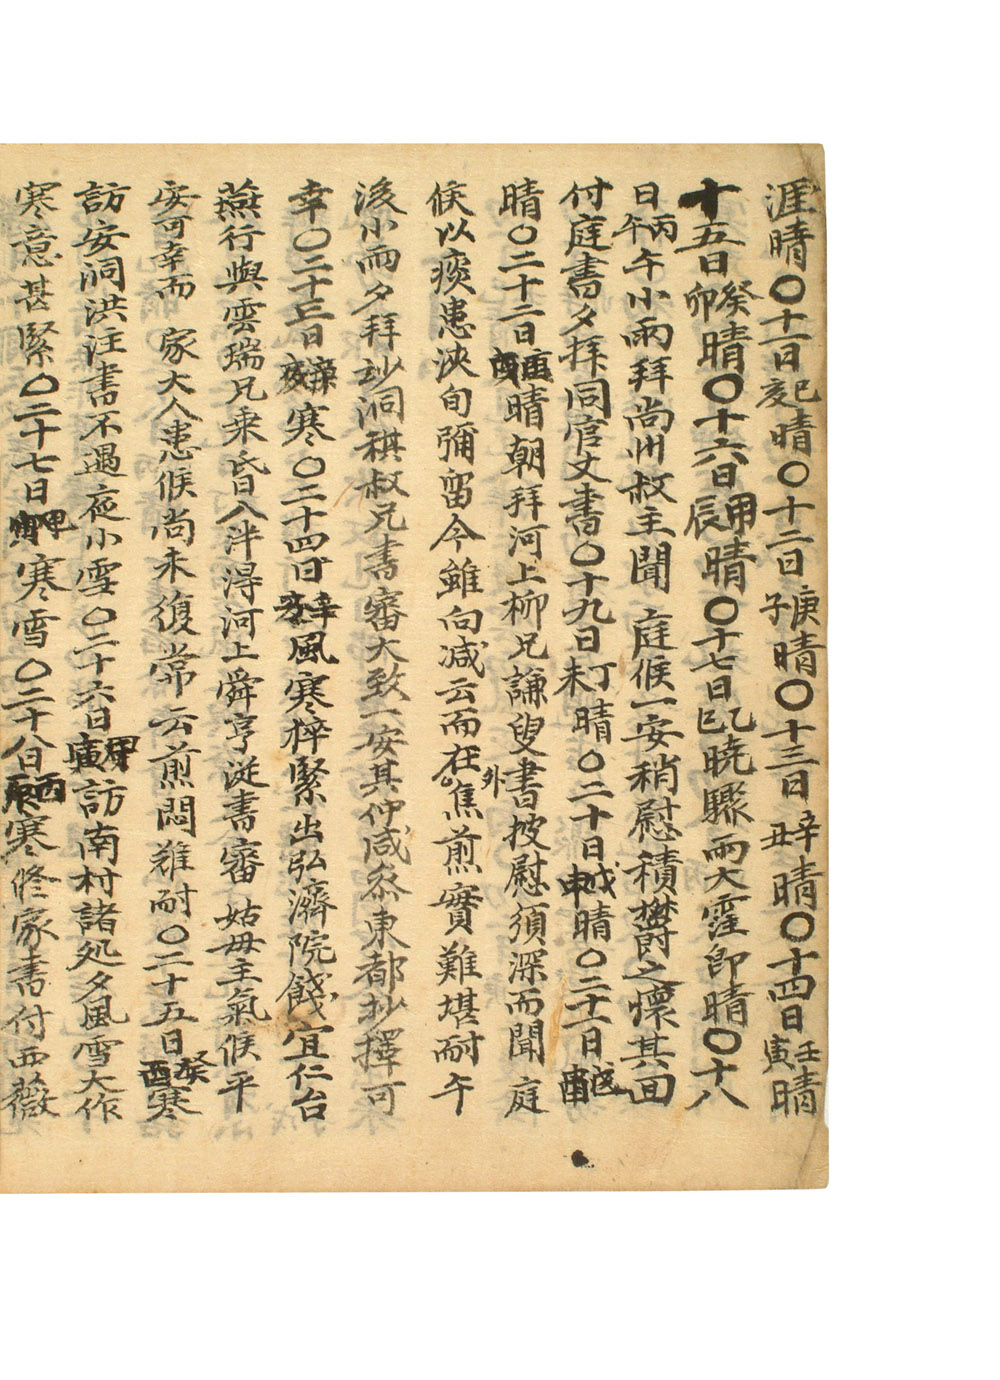 涯晴○十一日己亥晴○十二日庚子晴○十三日辛丑晴○十四日壬寅晴
十五日癸卯晴○十六日甲辰晴○十七日乙巳曉驟雨大霔即晴○十八
日丙午午小雨拜尚州叔主聞 庭候一安稍慰積欝之懷其回
付庭書夕拜同官文書○十九日丁未晴○二十日戊申晴○二十一日
晴○二十二日晴朝拜河上柳兄謙叟書披慰須深而聞 庭
候以痰患浹旬彌留今雖向減云而在外焦煎實難堪耐午
後小雨夕拜沙洞祺叔兄書審大致一安其仲咸叅東都抄擇可
幸○二十三日寒○二十四日風寒猝緊出弘濟院餞宜仁台
燕行與雲瑞兄乘昏入泮得河上舜亨從書審姑母主氣候平
安可幸而 家大人患候尚未復常云煎悶難耐○二十五日癸酉寒
訪安洞洪注書不遇夜小雪○二十六日訪南村諸処夕風雪大作
寒意甚緊○二十七日寒雪○二十八日寒修家書付西薇